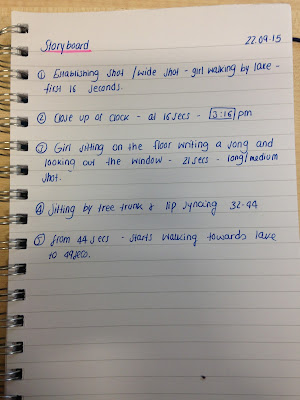 Storyboard 22.09.15
① Establishing shot / wide shot - girl walking by lake -
first 16 seconds.
② Close up of clock - at 16 secs - 3:16 pm
③ Girl sitting on the floor writing a song and
looking out the window - 21 secs - long/medium
shot.
④ Sitting by tree trunk & lip syncing 32-44
⑤ from 44 secs - starts walking towards lake
to 49 secs.